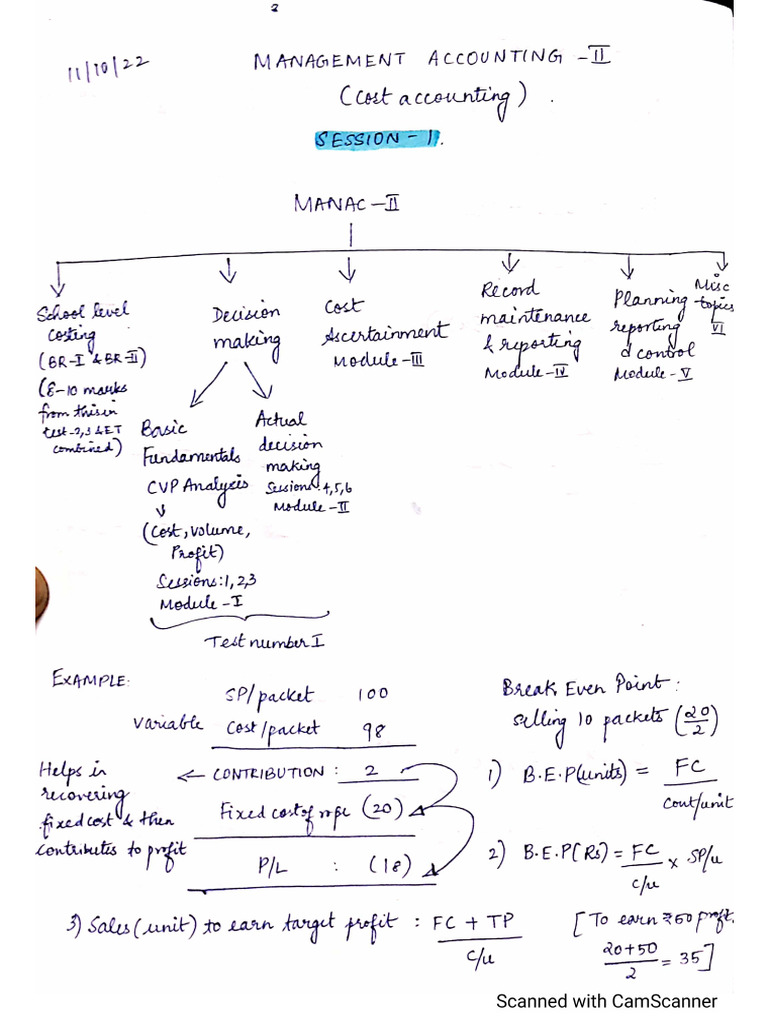 2
11/10/22
MANAGEMENT ACCOUNTING - II
(Cost accounting).
SESSION - 1.
MANAC - II
School level
costing
(BR-I & BR-II)
(8-10 marks
from this in
test-2,3 & ET
combined)
Decision
making
Basic
Fundamentals
CVP Analysis
(Cost, volume,
Profit)
Sessions: 1,2,3
Module - I
Actual
decision
making
Sessions: 4,5,6
Module - II
Test number I
Cost
Ascertainment
Module - III
Record
maintenance
& reporting
Module - IV
Planning
reporting
& control
Module - V
Misc
topics
VI
EXAMPLE:
SP/packet 100
Variable Cost/packet 98
CONTRIBUTION : 2
Fixed cost of rope (20)
P/L : (18)
Helps in
recovering
fixed cost & then
contributes to profit
Break Even Point :
Selling 10 packets (20/2)
1) B.E.P (units) = FC / Cont/unit
2) B.E.P (Rs) = FC / c/u × SP/u
3) Sales (unit) to earn target profit : FC + TP / c/u
[To earn ₹50 profit.
20+50 / 2 = 35]
Scanned with CamScanner